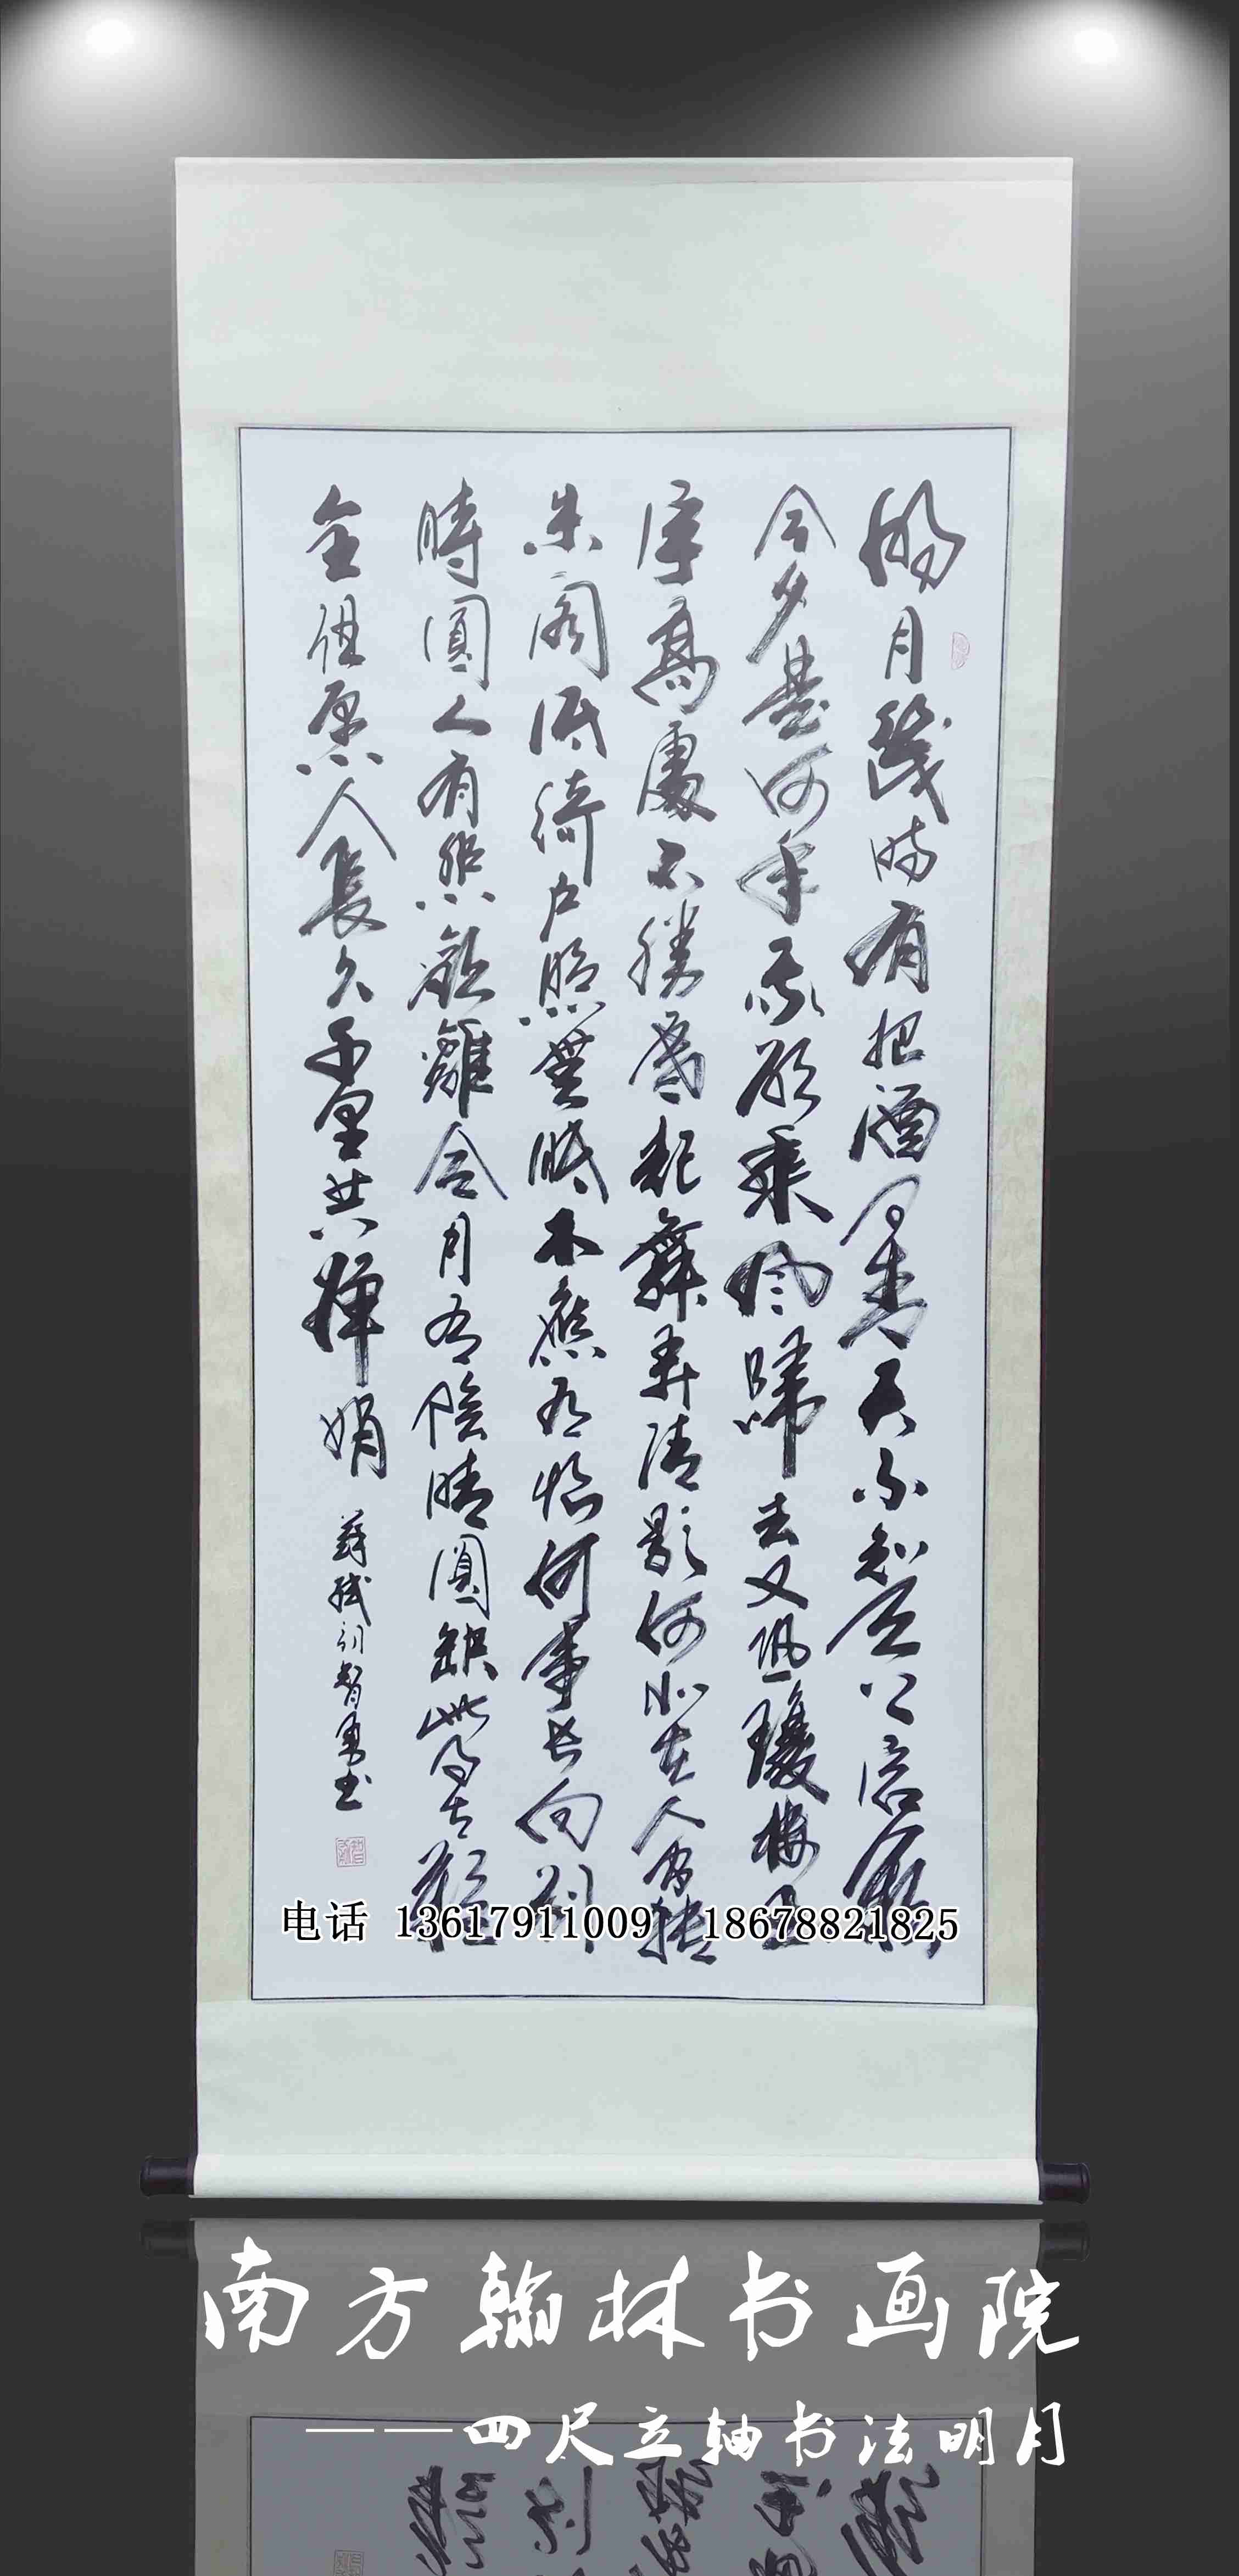 明月幾時有把酒問青天不知天上宮闕
今夕是何年我欲乘風歸去又恐瓊樓玉
宇高處不勝寒起舞弄清影何似在人間轉
朱閣低綺户照無眠不應有恨何事長向別
時圓人有悲歡離合月有陰晴圓缺此事古難
全但願人長久千里共嬋娟
蘇軾詞智勇书
电话 13617911009 18678821825
南方翰林书画院
——四尺立轴书法明月